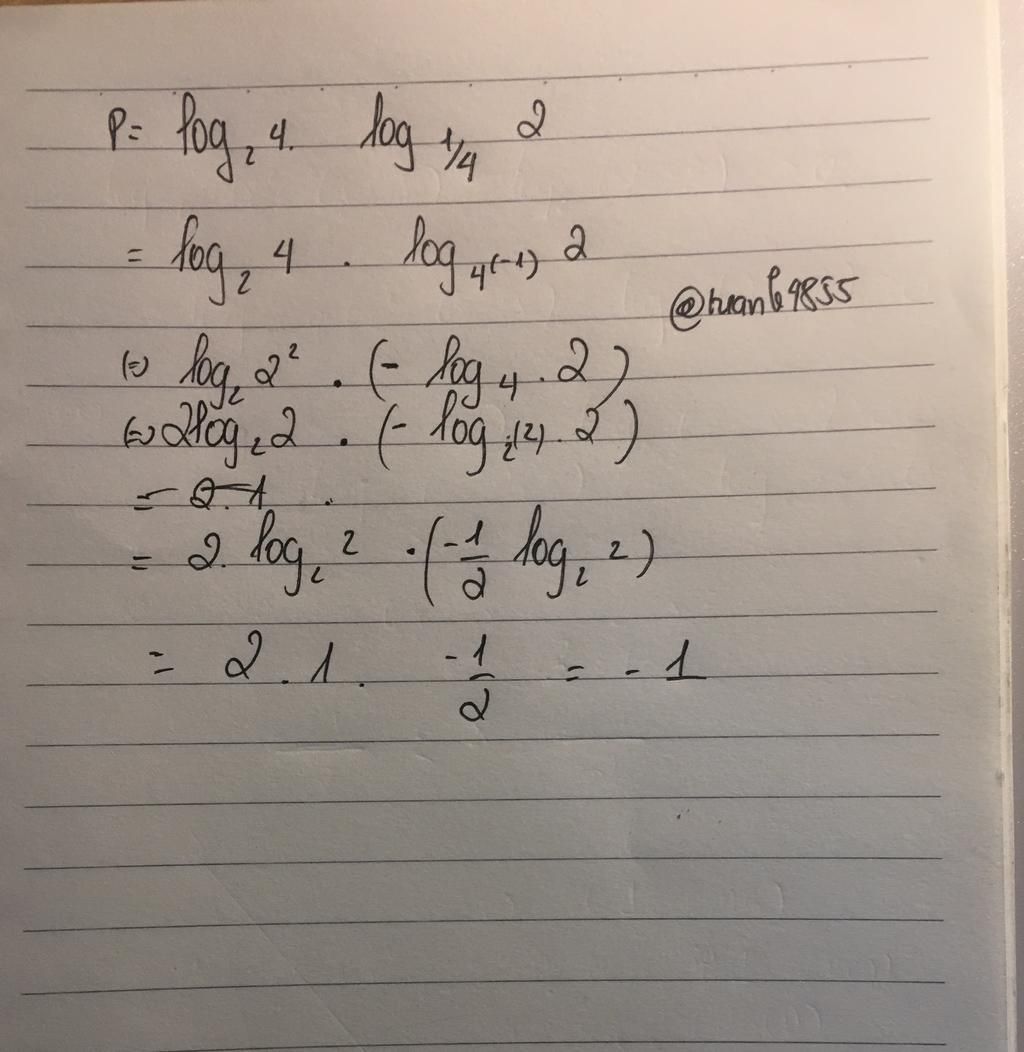 P = log₂ 4 . log_{1/4} 2
= log₂ 4 . log_{4^{(-1)}} 2
(=) log₂ 2² . (- log₄ . 2)
(=) 2log₂ 2 . (- log_{2^{(2)}} . 2)
= 2.1 .
= 2. log₂ 2 . (-1/2 log₂ 2)
= 2 . 1 . -1/2 = - 1